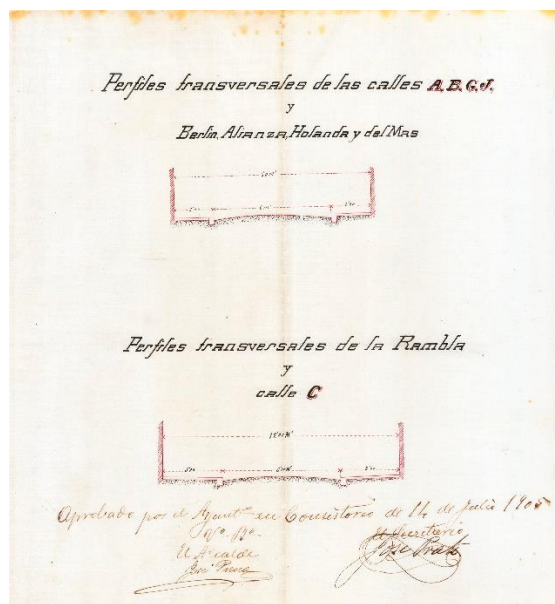 Perfiles transversales de las calles A. B. G. J.
y
Berlin, Alianza, Holanda y del Mas
Perfiles transversales de la Rambla
y
calle C
Aprobado por el Ayuntº en Consistorio de 14 de Julio 1905
Vº Bº
El Alcalde
El Secretario
José Prats